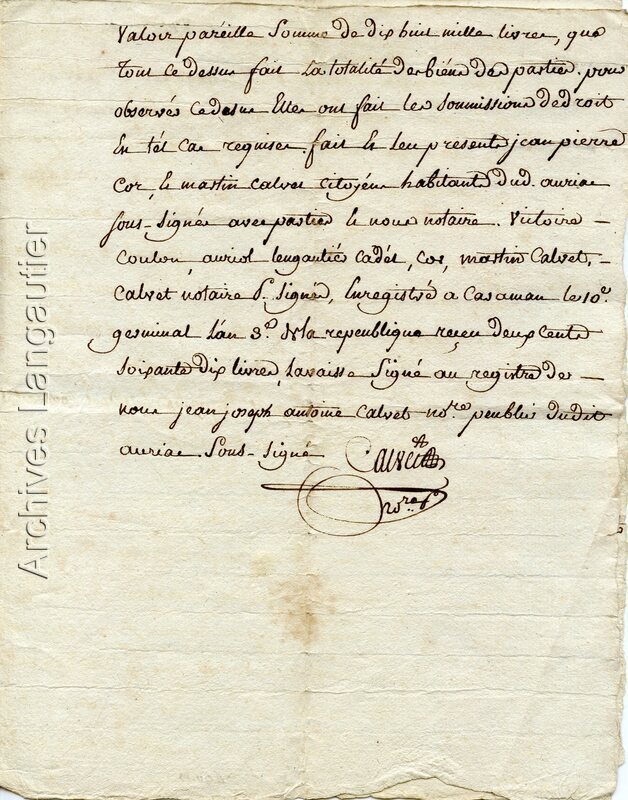 Valoir pareille Somme de dix huit mille livres, que
Tout ce dessus fait La totalité des biens des parties. pour
observés cedessus Elles ont fait les soummissions de droit
En tél cas requises. fait Et Leu presents jean pierre
Cor, Et martin calvet citoyéns habitants dud. auriac
sous-signés avec parties Et nous notaire. Victoire —
Coulon, auriol, Lengautiés cadét, Cor, martin Calvet, -
Calvet notaire p.r Signés, Enregistré a Caraman le 10.e
germinal L'an 3.e de la republique receu deux cents
soixante dix livres, Lavaisse Signé au registre de —
nous jean joseph antoine Calvet no.re peublic dudit
auriac Sous-signé Calvet
no.re p.
Archives Langautier